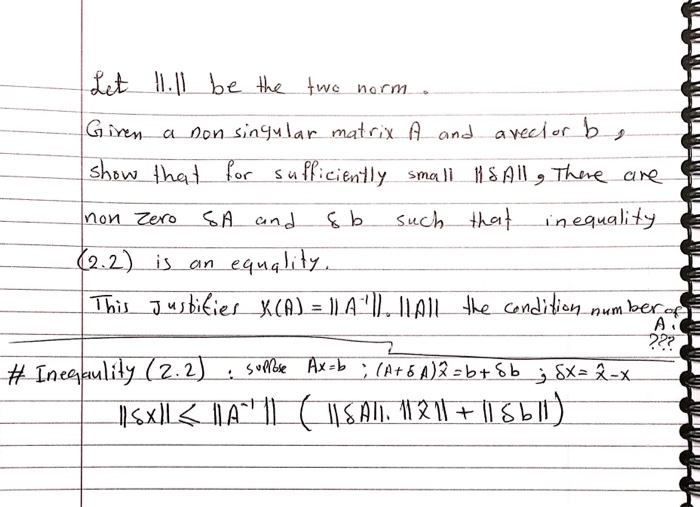 Let ||.|| be the two norm.
Given a non singular matrix A and a vector b,
show that for sufficiently small ||δA||, There are
non zero δA and δb such that inequality
(2.2) is an equality.
This Justifies K(A) = ||A⁻¹||. ||A|| the condition number of
A.
???
# Ineqaulity (2.2) : suppose Ax=b ; (A+δA)x̂ = b+δb ; δx = x̂-x
||δx|| ≤ ||A⁻¹|| ( ||δA||. ||x̂|| + ||δb||)